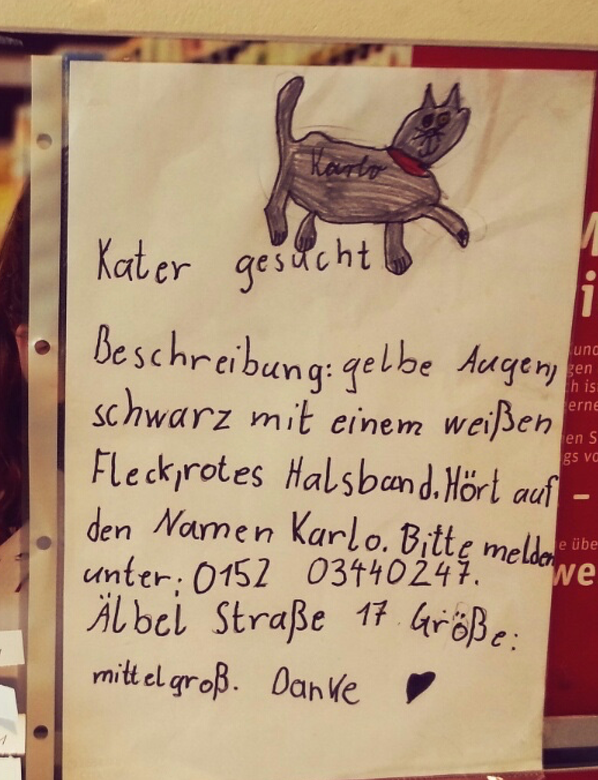 Karlo
Kater gesucht
Beschreibung: gelbe Augen,
schwarz mit einem weißen
Fleck, rotes Halsband. Hört auf
den Namen Karlo. Bitte melden
unter: 0152 03440247.
Älbel Straße 17 Größe:
mittelgroß. Danke ♥